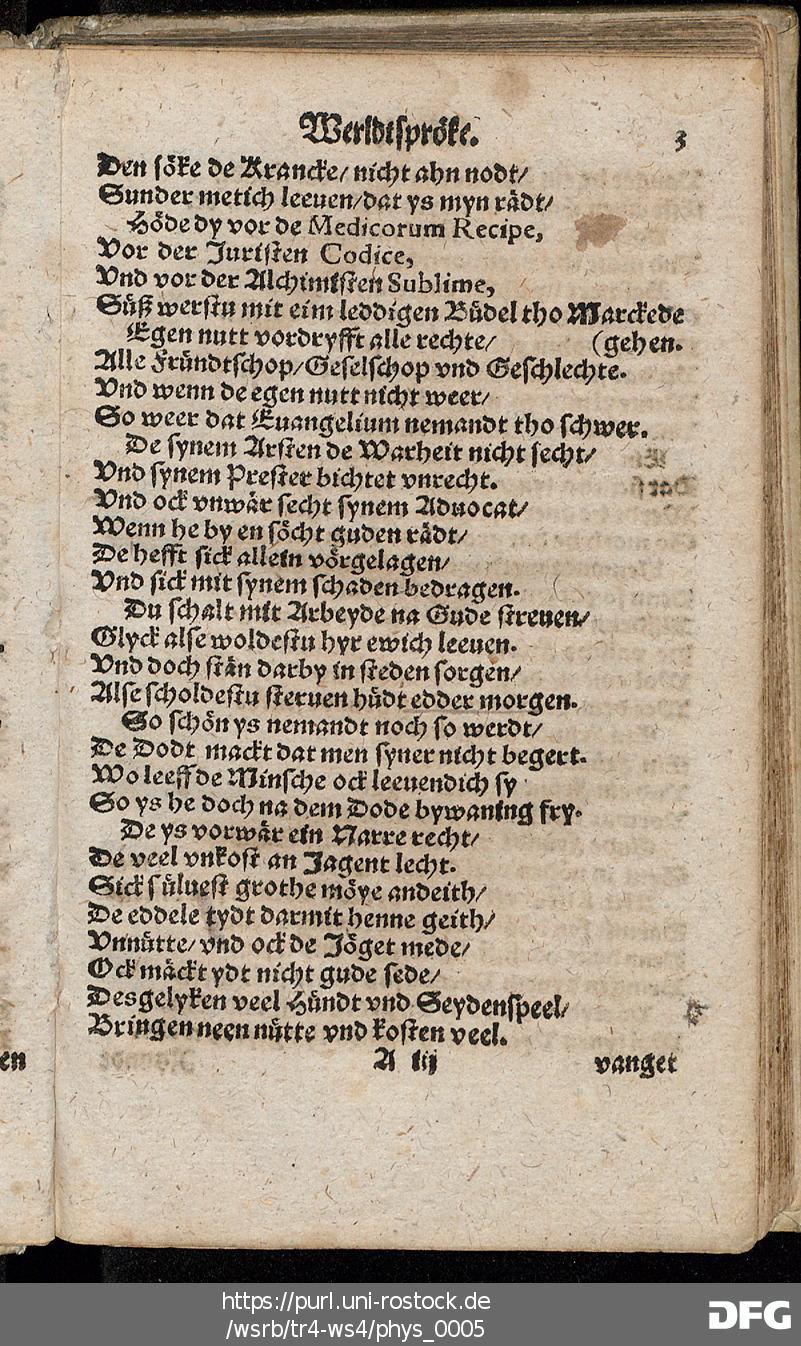 Werldtspröke. 3
Den söke de Krancke/ nicht ahn nodt/
Sunder metich leeuen/dat ys myn rädt/
Höde dy vor de Medicorum Recipe,
Vor der Juristen Codice,
Vnd vor der Alchimisten Sublime,
Süß werstu mit eim leddigen Büdel tho Marckede
Egen nutt vordryfft alle rechte/ (gehen.
Alle Fründtschop/Geselschop vnd Geschlechte.
Vnd wenn de egen nutt nicht weer/
So weer dat Euangelium nemandt tho schwer.
De synem Arsten de Warheit nicht secht/
Vnd synem Prester bichtet vnrecht.
Vnd ock vnwär secht synem Aduocat/
Wenn he by en söcht guden rädt/
De hefft sick allein vörgelagen/
Vnd sick mit synem schaden bedragen.
Du schalt mit Arbeyde na Gude streuen/
Glyck alse woldestu hyr ewich leeuen.
Vnd doch stän darby in steden sorgen/
Alse scholdestu steruen hüdt edder morgen.
So schön ys nemandt noch so werdt/
De Dodt mackt dat men syner nicht begert.
Wo leeff de Minsche ock leeuendich sy
So ys he doch na dem Dode bywaning fry.
De ys vorwär ein Narre recht/
De veel vnkost an Jagent lecht.
Sick süluest grothe möye andeith/
De eddele tydt darmit henne geith/
Vnnütte/ vnd ock de Jöget mede/
Ock mäckt ydt nicht gude sede/
Desgelyken veel Hündt vnd Seydenspeel/
Bringen neen nütte vnd kosten veel.
A iij vanget
en
https://purl.uni-rostock.de
/wsrb/tr4-ws4/phys_0005
DFG